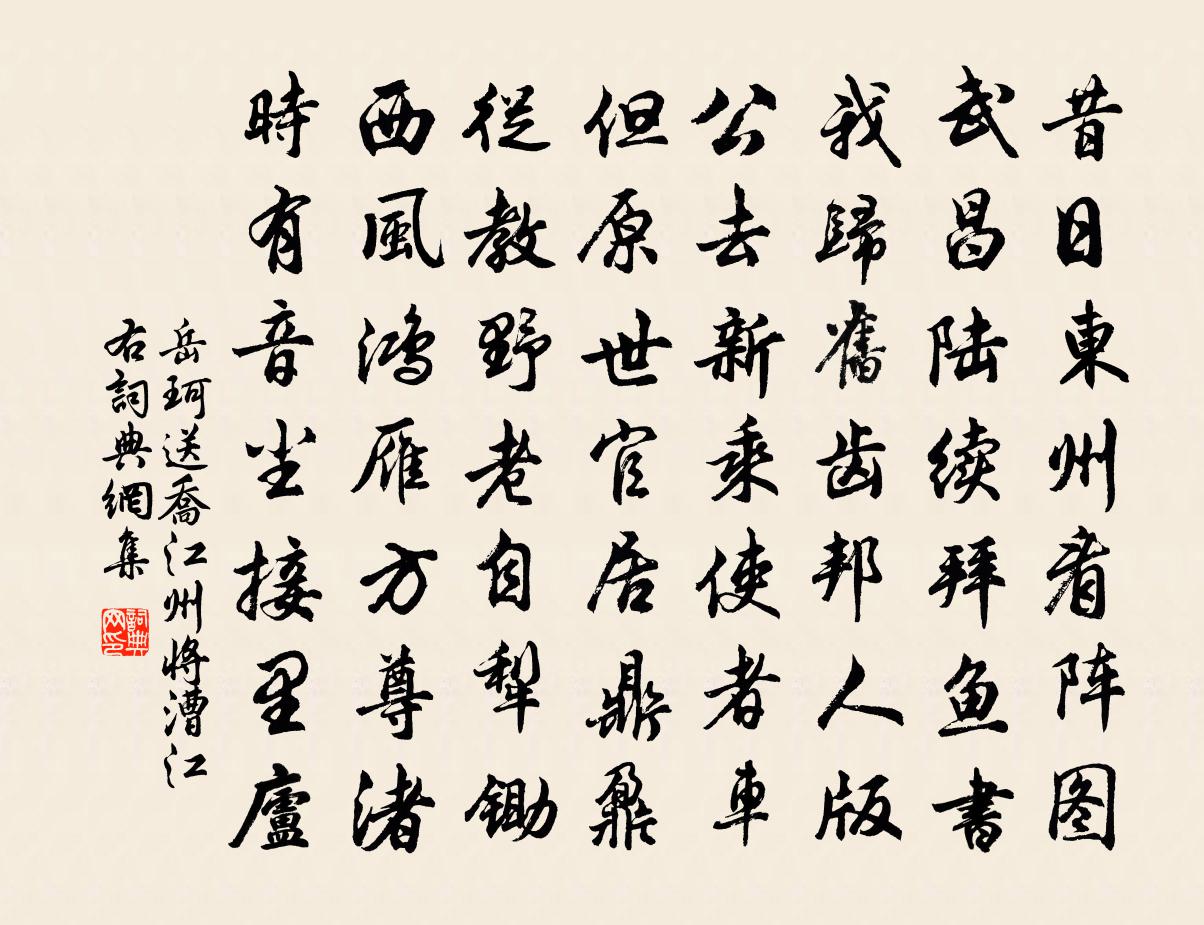 昔日東州看阵图
武昌陆续拜鱼書
我歸舊齿邦人版
公去新乘使者車
但原世官居鼎鼐
從教野老自犁锄
西風鸿雁方尊渚
時有音尘接里廬
岳珂送喬江州将漕江
右詞典網集
詞典
网印